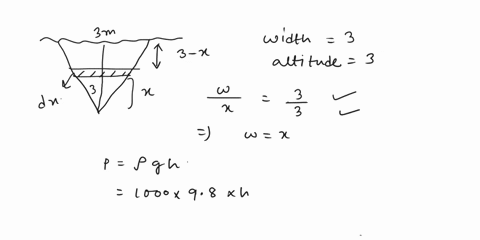 3m
3-x
x
3
dx
width = 3
altitude = 3
w/x = 3/3 ✓
=) w = x ✓
P = ρgh
= 1000 x 9.8 x h